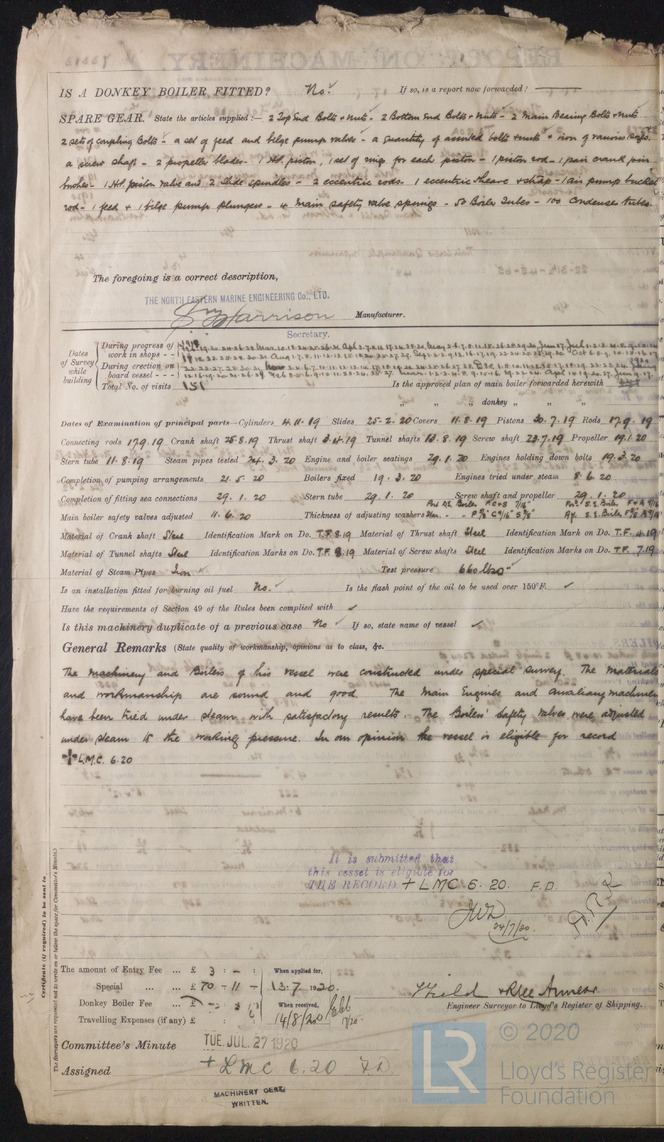 IS A DONKEY BOILER FITTED? No. If so, is a report now forwarded?
SPARE GEAR. State the articles supplied:— 2 Top End Bolts & Nuts - 2 Bottom End Bolts & Nuts - 2 Main Bearing Bolts & Nuts
2 sets of coupling Bolts - a set of feed and bilge pump valves - a quantity of assorted bolts & nuts & iron of various sizes
a screw shaft - 2 propeller blades - 1 piston, 1 set of rings for each piston - 1 piston rod - 1 pair crank pin
bushes - 1 piston valve and 2 slide spindles - 2 eccentric rods. 1 eccentric sheave & strap - 1 air pump bucket
rod - 1 feed & 1 bilge pump plungers - 4 main safety valve springs - 50 Boiler Tubes - 100 Condenser Tubes.
The foregoing is a correct description,
THE NORTH EASTERN MARINE ENGINEERING Co., LTD.
Harrison Manufacturer.
Secretary.
Dates of Survey while building
During progress of work in shops - -
During erection on board vessel - - -
Total No. of visits 151 Is the approved plan of main boiler forwarded herewith
" " " donkey " " "
Dates of Examination of principal parts—Cylinders 4.11.19 Slides 25-2.20 Covers 11.8.19 Pistons 30.7.19 Rods 17.9.19
Connecting rods 17.9.19 Crank shaft 25.8.19 Thrust shaft 3.4.19 Tunnel shafts 13.8.19 Screw shaft 23.7.19 Propeller 19.1.20
Stern tube 11.8.19 Steam pipes tested 24.3.20 Engine and boiler seatings 29.1.20 Engines holding down bolts 19.3.20
Completion of pumping arrangements 21.5.20 Boilers fixed 19.3.20 Engines tried under steam 8.6.20
Completion of fitting sea connections 29.1.20 Stern tube 29.1.20 Screw shaft and propeller 29.1.20
Main boiler safety valves adjusted 11.6.20 Thickness of adjusting washers
Material of Crank shaft Steel Identification Mark on Do. T.F.8.19 Material of Thrust shaft Steel Identification Mark on Do. T.F. 4.19
Material of Tunnel shafts Steel Identification Marks on Do. T.F. 8.19 Material of Screw shafts Steel Identification Marks on Do. T.F. 7.19
Material of Steam Pipes Iron Test pressure 660 lbs □"
Is an installation fitted for burning oil fuel No. Is the flash point of the oil to be used over 150°F. ✓
Have the requirements of Section 49 of the Rules been complied with ✓
Is this machinery duplicate of a previous case No If so, state name of vessel ✓
General Remarks (State quality of workmanship, opinions as to class, &c.
The Machinery and Boilers of his vessel were constructed under special survey. The materials
and workmanship are sound and good. The Main Engines and Auxiliary machinery
have been tried under steam with satisfactory results. The Boilers' Safety Valves were adjusted
under steam to the working pressure. In our opinion the vessel is eligible for record
✠ L.M.C. 6.20
It is submitted that
this vessel is eligible for
THE RECORD + LMC 6.20. F.D.
24/7/20.
Certificate (if required) to be sent to
The amount of Entry Fee ... £ 3 : - : When applied for,
Special ... £ 70 - 11 - 13.7.1920.
Donkey Boiler Fee ... £ When received,
Travelling Expenses (if any) £ 14/8/20
Engineer Surveyor to Lloyd's Register of Shipping.
Committee's Minute TUE. JUL. 27 1920
Assigned + LMC 6.20 F.D.
MACHINERY CERT.
WRITTEN.
LR © 2020
Lloyd's Register
Foundation